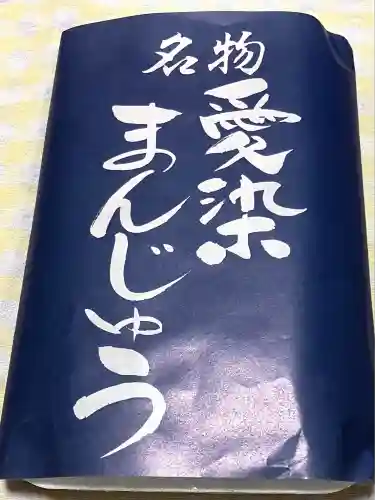 名物
愛染
まんじゅう